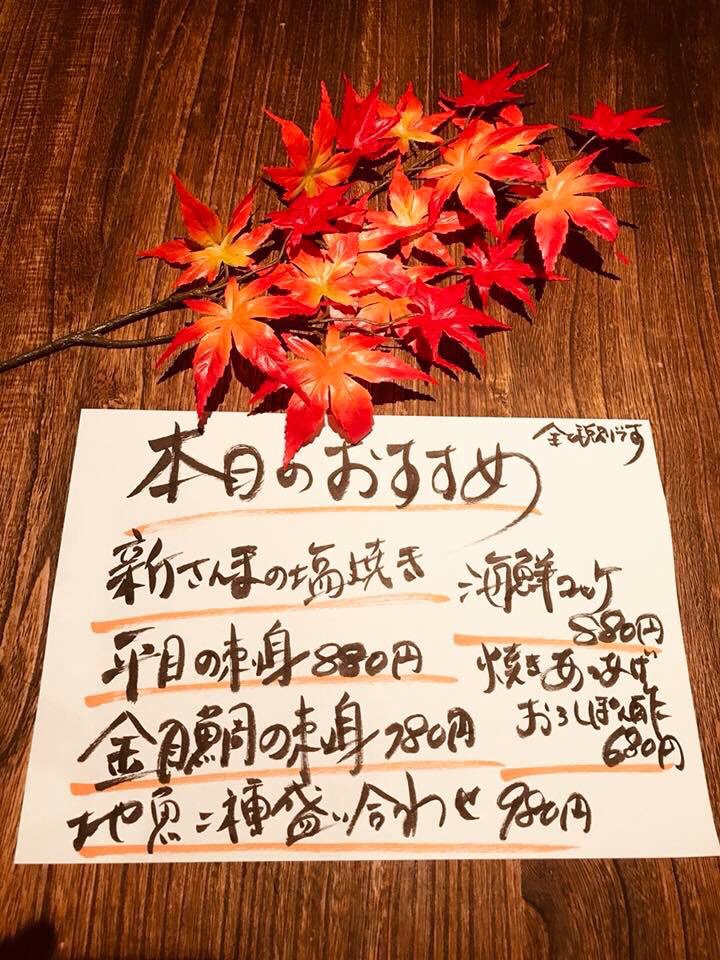 全て税別です
本日のおすすめ
新さんまの塩焼き
平目の刺身 880円
金目鯛の刺身 780円
地魚二種盛り合わせ 980円
海鮮ユッケ
880円
焼きあつあげ
おろしぽん酢に
680円